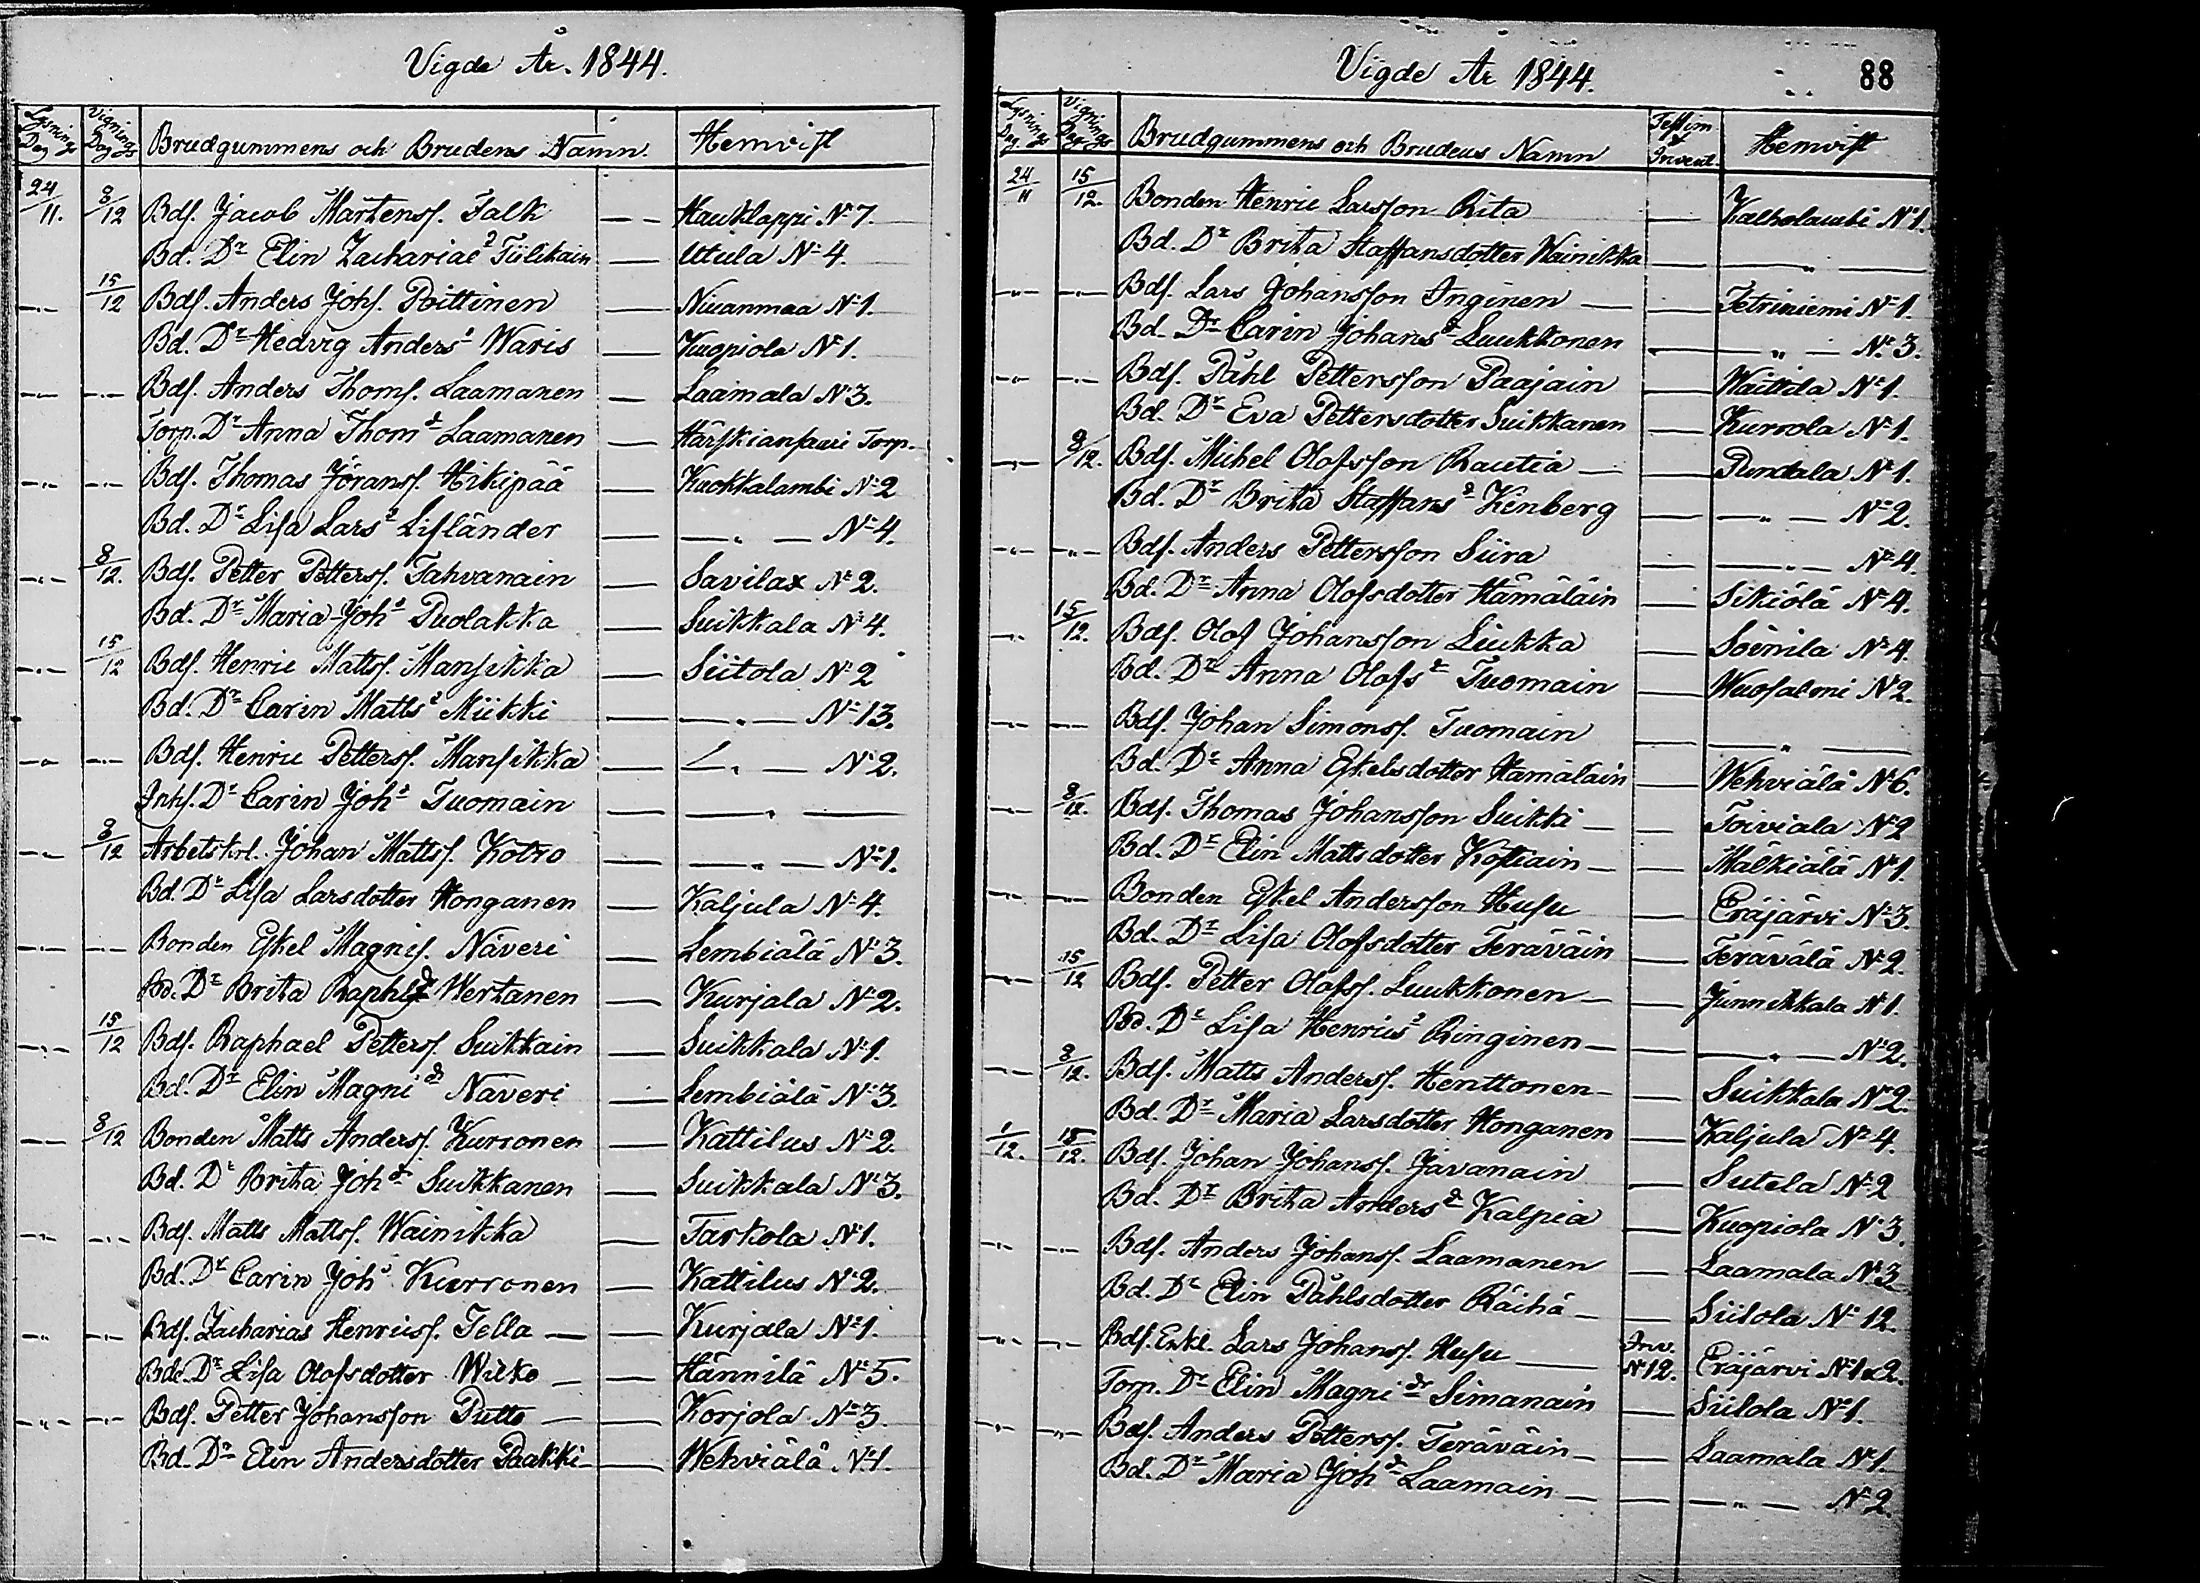 Vigde År. 1844.
Lysnings Dag Vignings Dag Brudgummens och Brudens Namn. Hemvist
24/11. 8/12 Bds. Jacob Mårtenss. Talk — — Hauklappi No 7.
Bd. Dr Elin Zachariaed Tiilikain — Utula No 4.
—„— 15/12 Bds. Anders Johs. Pöittinen — Nuuanmaa No 1.
Bd. Dr Hedvig Andersd Waris — Kuopiola No 1.
—„— —„— Bds. Anders Thoms. Laamanen — Laamala No 3.
Torp. Dr Anna Thomd Laamanen — Härskiansaari Torp.
—„— —„— Bds. Thomas Jöranss. Hikipää — Kuokkalambi No 2
Bd. Dr Lisa Larsd Lifländer — —„— No 4.
—„— 8/12. Bds. Petter Petterss. Tahvanain — Savilax No 2.
Bd. Dr Maria Johd Puolakka — Suikkala No 4.
—„— 15/12 Bds. Henric Mattss. Mansikka — Siitola No 2
Bd. Dr Carin Mattsd Miikki — —„— No 13.
—„— —„— Bds. Henric Petterss. Mansikka — —„— No 2.
Inhs. Dr Carin Johd Tuomain — —„—
—„— 8/12 Arbetskrl. Johan Mattss. Kotro — —„— No 1.
Bd. Dr Lisa Larsdotter Honganen — Kaljula No 4.
—„— —„— Bonden Eskel Magnis. Näveri — Lembiälä No 3.
Bd. Dr Brita Raphlsd Wertanen — Kurjala No 2.
—„— 15/12 Bds. Raphael Petterss. Suikkain — Suikkala No 1.
Bd. Dr Elin Magnidr Näveri — Lembiälä No 3.
—„— 8/12 Bonden Matts Anderss. Kurronen — Kattilus No 2.
Bd. Dr Brita Johdr Suikkanen — Suikkala No 3.
—„— —„— Bds. Matts Mattss. Wainikka — Tarkola No 1.
Bd. Dr Carin Johd Kurronen — Kattilus No 2.
—„— —„— Bds. Zacharias Henricss. Tella — — Kurjala No 1.
Bds. Dr Lisa Olofsdotter Wilko — — Hännilä No 5.
—„— —„— Bds. Petter Johansson Putto — — Korjola No 3.
Bd. Dr Elin Andersdotter Paakki — — Wehviälä No 1.
Vigde År 1844. 88
Lysnings Dag Vignings Dag Brudgummens och Brudens Namn Testim & Invent. Hemvist
24/11 15/12. Bonden Henric Larsson Rita — Kalholambi No 1.
Bd. Dr Brita Staffansdotter Wainikka — —„—
—„— —„— Bds. Lars Johansson Inginen — — Tetriniemi No 1.
Bd. Dr Carin Johansd Luukkonen — —„— No 3.
—„— —„— Bds. Påhl Pettersson Paajain — Waittila No 1.
Bd. Dr Eva Pettersdotter Suikkanen — Kurrola No 1.
—„— 8/12. Bds. Michel Olofsson Rautia — — Pundala No 1.
Bd. Dr Brita Staffansd Kinberg — —„— No 2.
—„— —„— Bds. Anders Pettersson Siira — —„— No 4.
Bd. Dr Anna Olofsdotter Hämäläin — Sikiölä No 4.
—„— 15/12. Bds. Olof Johansson Liukka — Soinila No 4.
Bd. Dr Anna Olofsd Tuomain — Wuosalmi No 2.
—„— —„— Bds. Johan Simonss. Tuomain — —„—
Bd. Dr Anna Eskelsdotter Hämäläin — Wehviälä No 6.
—„— 8/12. Bds. Thomas Johansson Suikki — — Toiviala No 2
Bd. Dr Elin Mattsdotter Kostiain — — Mälkiälä No 1.
—„— —„— Bonden Eskel Andersson Husu — Eräjärvi No 3.
Bd. Dr Lisa Olofsdotter Teräväin — Terävälä No 2.
—„— 15/12 Bds. Petter Olofss. Luukkonen — — Junnikkala No 1.
Bd. Dr Lisa Henricsd Ringinen — — —„— No 2.
—„— 8/12. Bds. Matts Anderss. Henttonen — — Suikkala No 2.
Bd. Dr Maria Larsdotter Honganen — Kaljula No 4.
1/12. 15/12. Bds. Johan Johanss. Javanain — Sutela No 2
Bd. Dr Brita Andersd Kalpia — Kuopiola No 3.
—„— —„— Bds. Anders Johanss. Laamanen — Laamala No 3
Bd. Dr Elin Påhlsdotter Räihä — — Siitola No 12.
—„— —„— Bds. Enkl. Lars Johanss. Husu — Inv. No 12. Eräjärvi No 1 & 2.
Torp. Dr Elin Magnidr Simanain — Siitola No 1.
—„— —„— Bds. Anders Petterss. Teräväin — — Laamala No 1.
Bd. Dr Maria Johdr Laamain — — —„— No 2.